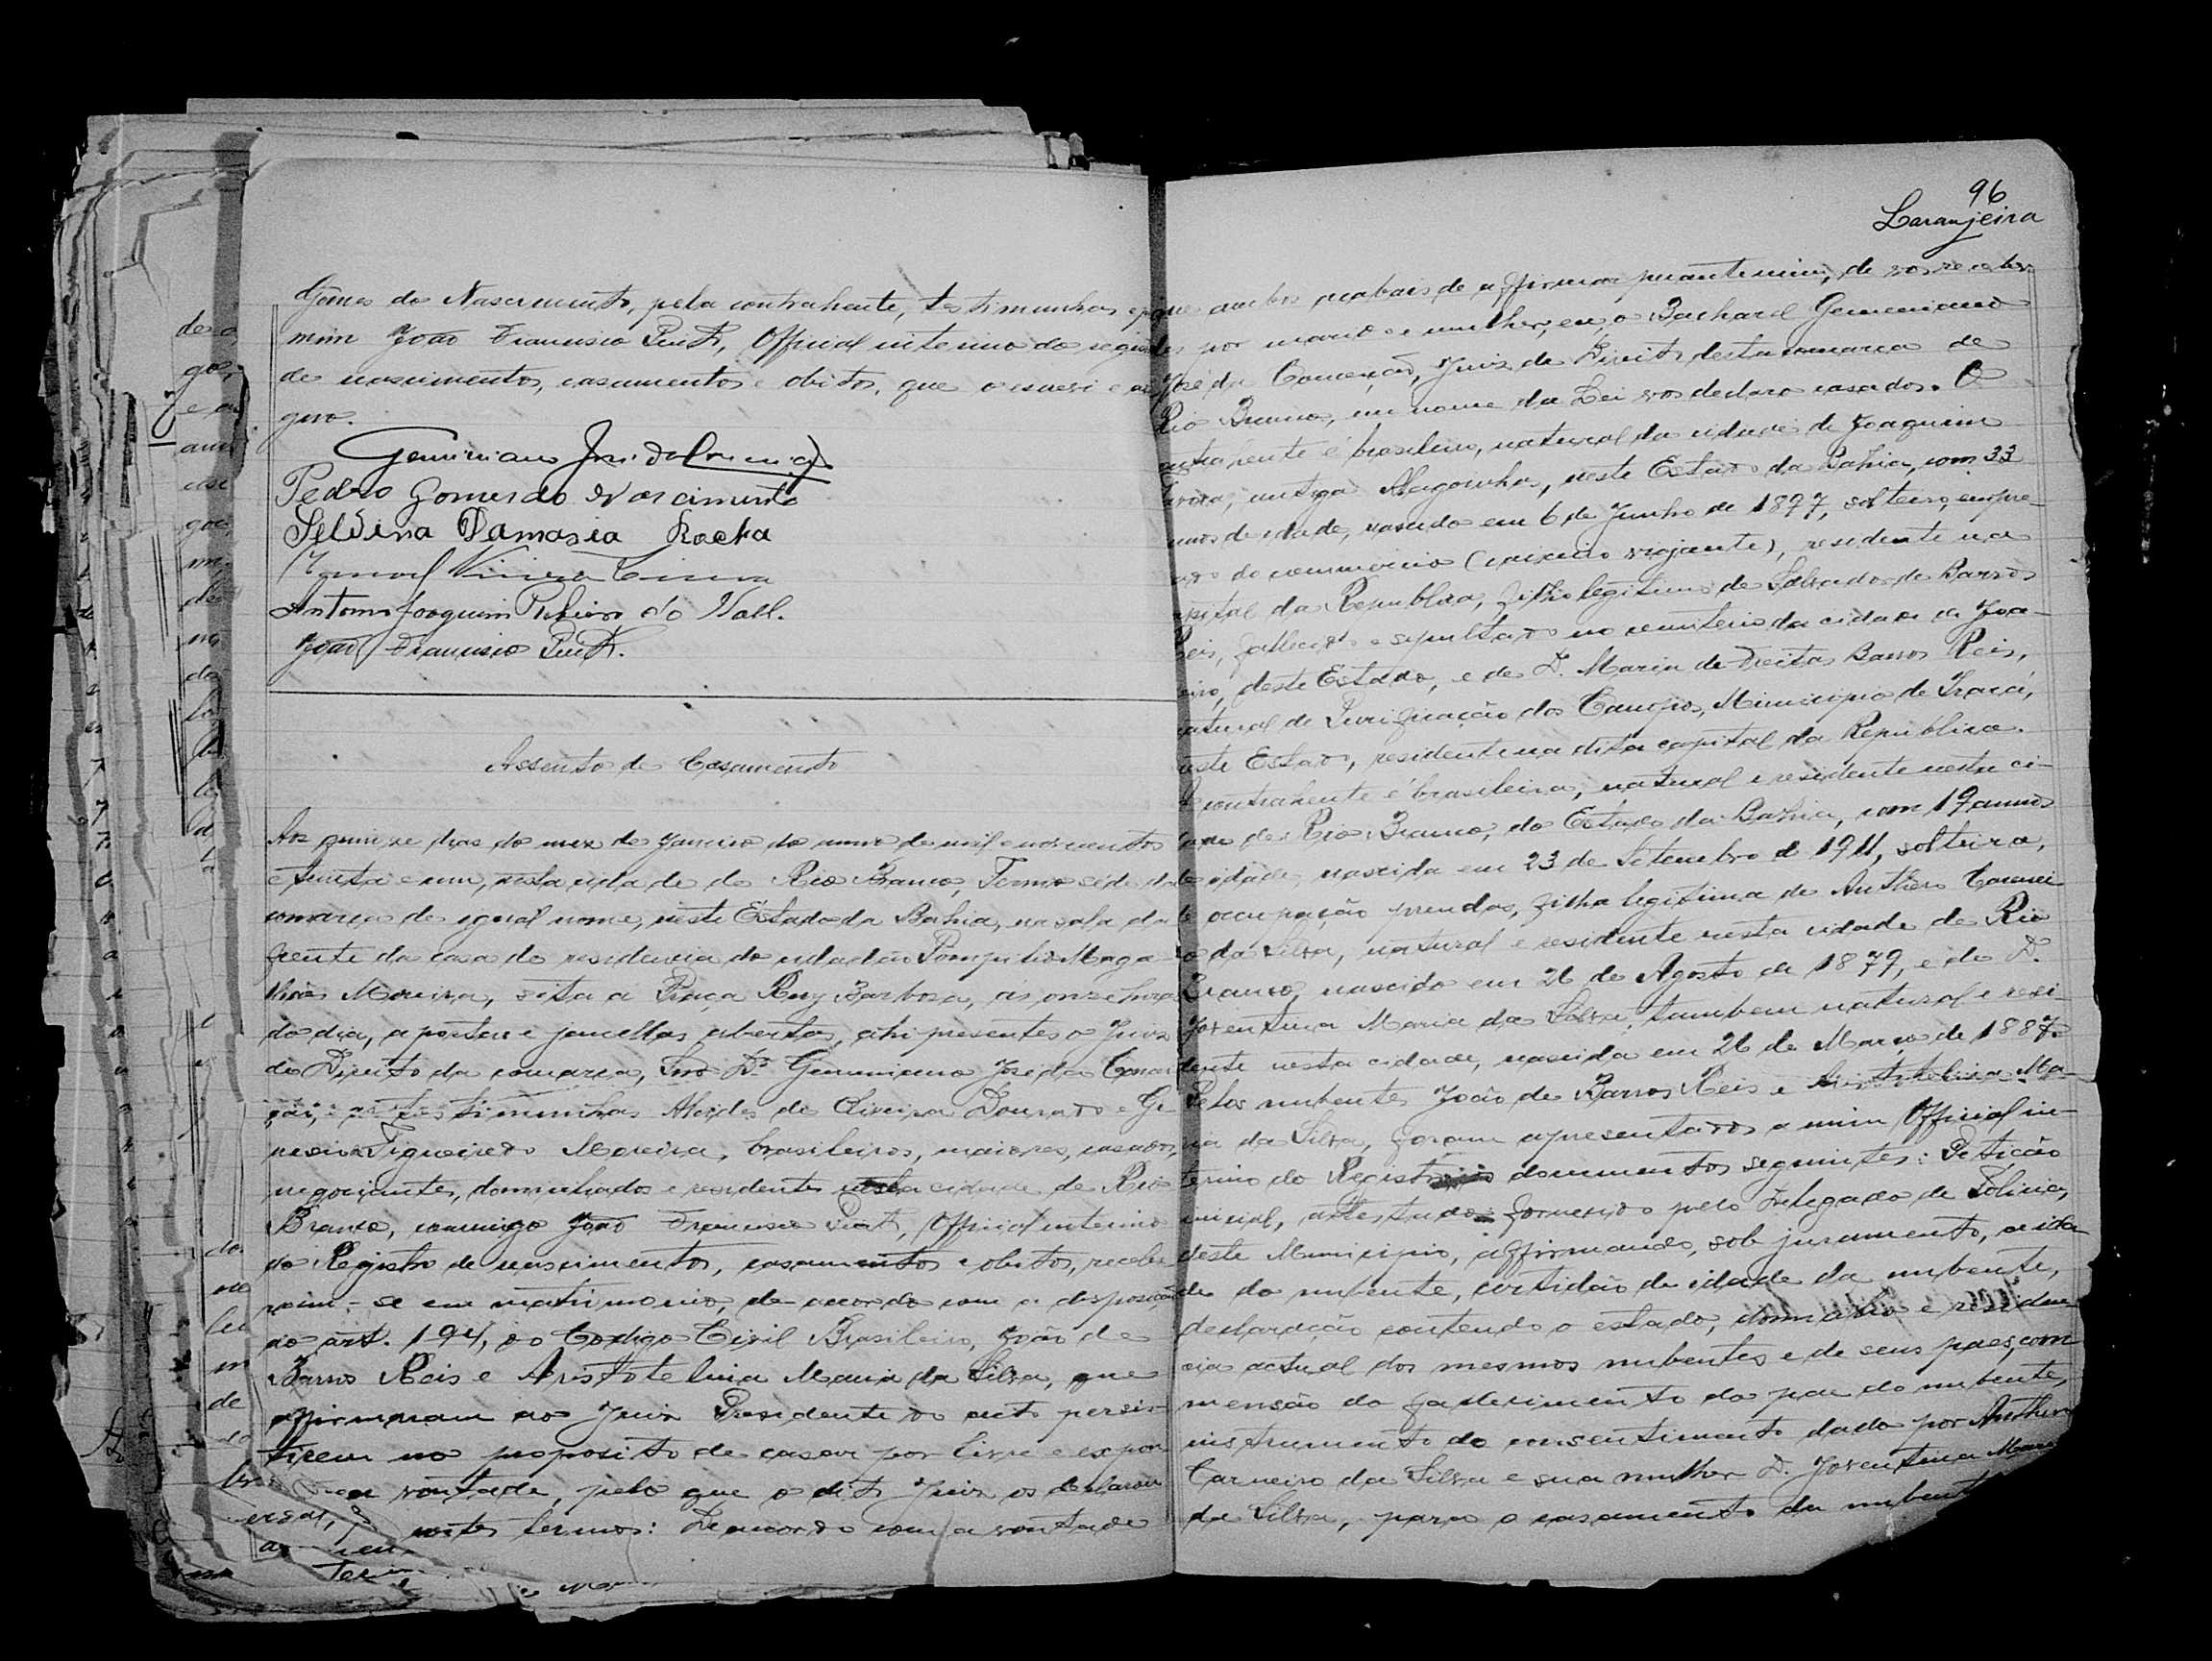 Gomes do Nascimento, pela contrahente, testimunhas e por
mim João Francisco Pint, Official interino do registro
de nascimentos, casamentos e obitos, que o escrevi e as-
signo.
Geminiano José da Conceição
Pedro Gomes do Nascimento
Selvina Damasia Rocha
Manoel
Antonio Joaquim Ribeiro do Vall.
João Francisco Pint.
Assento de Casamento
Aos quinze dias do mez de Janeiro do anno de mil e novecentos
e trinta e um, nesta cidade de Rio Branco, Termo séde da
comarca de egual nome, neste Estado da Bahia, na sala da
frente da casa de residencia do cidadão Pompilio Maga
lhães Moreira, sita á Praça Ruy Barbosa, ás onze horas
do dia, a portas e janellas abertas, ahi presentes o Juiz
de Direito da comarca, Snr. Dr. Geminiano José da Concei
ção, as testimunhas Alcides de Oliveira Dourado e Ge
nesio Figueiredo Moreira, brasileiros, maiores, casados,
negociantes, domiciliados e residentes nesta cidade de Rio
Branco, commigo João Francisco Pint, Official interino
do Registro de nascimentos, casamentos e obitos, recebe
ram-se em matrimonio, de accordo com a disposição
do art. 194, do Codigo Civil Brasileiro, João de
Barros Reis e Aristotelina Maria da Silva, que
affirmaram ao Juiz Presidente do acto persis-
tirem no proposito de casar por livre e espon
tanea vontade, pelo que o dito Juiz os declarou
nestes termos: De accordo com a vontade
96
Laranjeira
que ambos acabais de affirmar perante mim, de vos receber
des por marido e mulher, eu, o Bacharel Geminiano
José da Conceição, Juiz de Direito desta comarca de
Rio Branco, em nome da Lei vos declaro casados. O
contrahente é brasileiro, natural da cidade de Joaquim
Tavora, antiga Alagoinha, neste Estado da Bahia, com 33
annos de idade, nascido em 6 de Junho de 1897, solteiro, empre-
gado do commercio (caixeiro viajante), residente na
capital da Republica, filho legitimo de Salvador de Barros
Reis, fallecido e sepultado no cemiterio da cidade de Joa-
zeiro, deste Estado, e de D. Maria de Freitas Barros Reis,
natural de Purificação dos Campos, Municipio de Irará,
neste Estado, residente na dita capital da Republica.
A contrahente é brasileira, natural e residente nesta ci-
dade de Rio Branco, do Estado da Bahia, com 19 annos
de idade, nascida em 23 de Setembro de 1911, solteira,
de occupação prendas, filha legitima de Anthero Carnei
ro da Silva, natural e residente nesta cidade de Rio
Branco, nascido em 26 de Agosto de 1879, e de D.
Joventina Maria da Silva, tambem natural e resi-
dente nesta cidade, nascida em 26 de Março de 1887.
Pelos nubentes João de Barros Reis e Aristotelina Ma-
ria da Silva, foram apresentados a mim Official in-
terino do Registro documentos seguintes: Petição
inicial, attestado fornecido pelo Delegado de Policia,
deste Municipio, affirmando, sob juramento, a ida
de do nubente, certidão de idade da nubente,
declaração contendo o estado, domicilio e residen
cia actual dos mesmos nubentes e de seus paes, com
mensão do fallecimento do pae do nubente,
instrumento do consentimento dado por Anthero
Carneiro da Silva e sua mulher D. Joventina Maria
da Silva, para o casamento da nubente